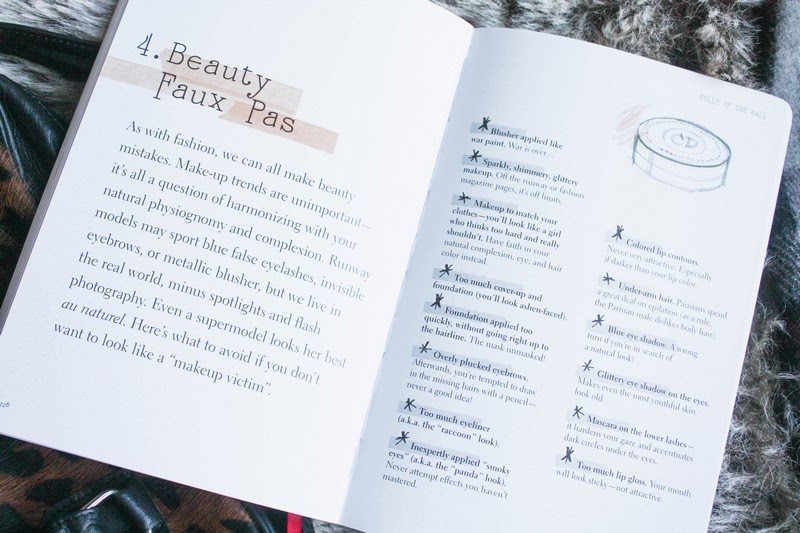 4. Beauty
Faux Pas
As with fashion, we can all make beauty
mistakes. Make-up trends are unimportant—
it's all a question of harmonizing with your
natural physiognomy and complexion. Runway
models may sport blue false eyelashes, invisible
eyebrows, or metallic blusher, but we live in
the real world, minus spotlights and flash
photography. Even a supermodel looks her best
au naturel. Here's what to avoid if you don't
want to look like a “makeup victim”.
126
BELLE OF THE BALL
Blusher applied like
war paint. War is over…
Sparkly, shimmery, glittery
makeup. Off the runway or fashion
magazine pages, it's off limits.
Makeup to match your
clothes—you'll look like a girl
who thinks too hard and really
shouldn't. Have faith in your
natural complexion, eye, and hair
color instead.
Too much cover-up and
foundation (you'll look ashen-faced).
Foundation applied too
quickly, without going right up to
the hairline. The mask unmasked!
Overly plucked eyebrows.
Afterwards, you're tempted to draw
in the missing hairs with a pencil—
never a good idea!
Too much eyeliner
(a.k.a. the “raccoon” look).
Inexpertly applied “smoky
eyes” (a.k.a. the “panda” look).
Never attempt effects you haven't
mastered.
Colored lip contours.
Never very attractive. Especially
if darker than your lip color.
Underarm hair. Parisians spend
a great deal on epilation (as a rule,
the Parisian male dislikes body hair).
Blue eye shadow. A wrong
turn if you're in search of
a natural look!
Glittery eye shadow on the eyes.
Makes even the most youthful skin
look old.
Mascara on the lower lashes—
it hardens your gaze and accentuates
dark circles under the eyes.
Too much lip gloss. Your mouth
will look sticky—not attractive.